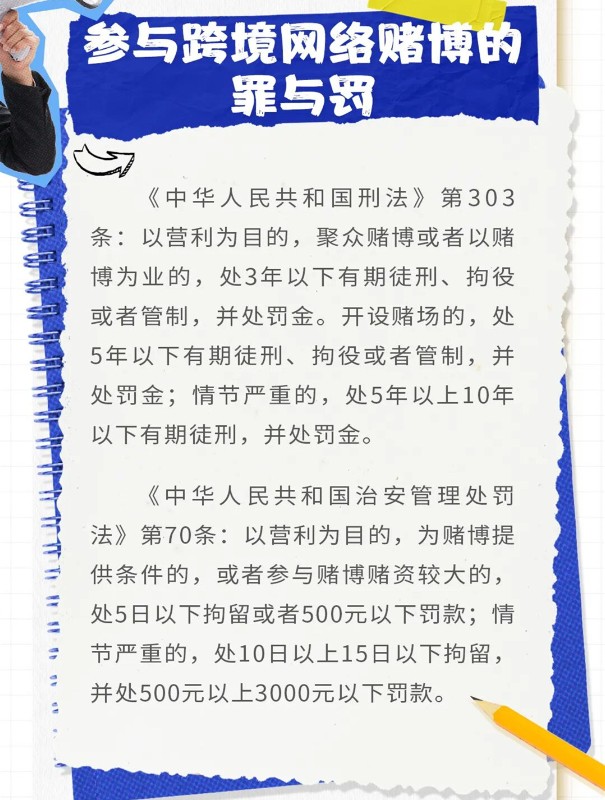 参与跨境网络赌博的
罪与罚
《中华人民共和国刑法》第303
条：以营利为目的，聚众赌博或者以赌
博为业的，处3年以下有期徒刑、拘役
或者管制，并处罚金。开设赌场的，处
5年以下有期徒刑、拘役或者管制，并
处罚金；情节严重的，处5年以上10年
以下有期徒刑，并处罚金。
《中华人民共和国治安管理处罚
法》第70条：以营利为目的，为赌博提
供条件的，或者参与赌博赌资较大的，
处5日以下拘留或者500元以下罚款；情
节严重的，处10日以上15日以下拘留，
并处500元以上3000元以下罚款。